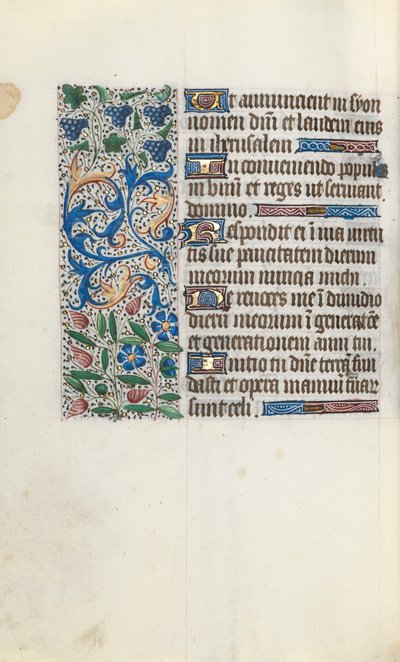 Ut annuncient in syon
nomen dm̄i et laudem eius
in iherusalem
In conueniendo popul
in vnū et reges ut seruiant
domino.
Respondit ei ī uia uirtu
tis sue paucitatem dierum
meorum nuncia michi.
Ne reuoces me ī dimidio
dierū meorum ī generatōe
et generationem anni tui.
Initio tu dn̄e terrā fun
dasti et opera manuū tuar
sunt celi.